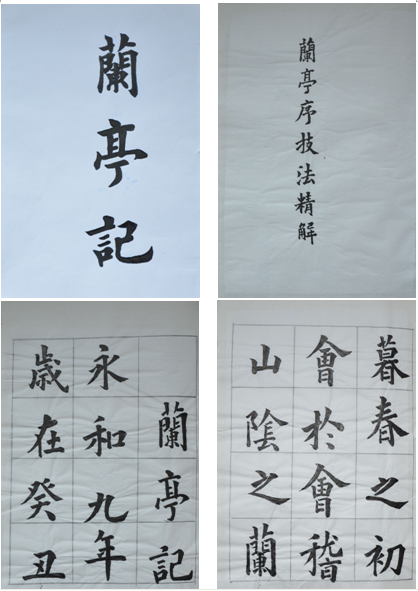 蘭亭記
蘭亭序技法精解
蘭亭記
永和九年
歲在癸丑
暮春之初
會於會稽
山陰之蘭